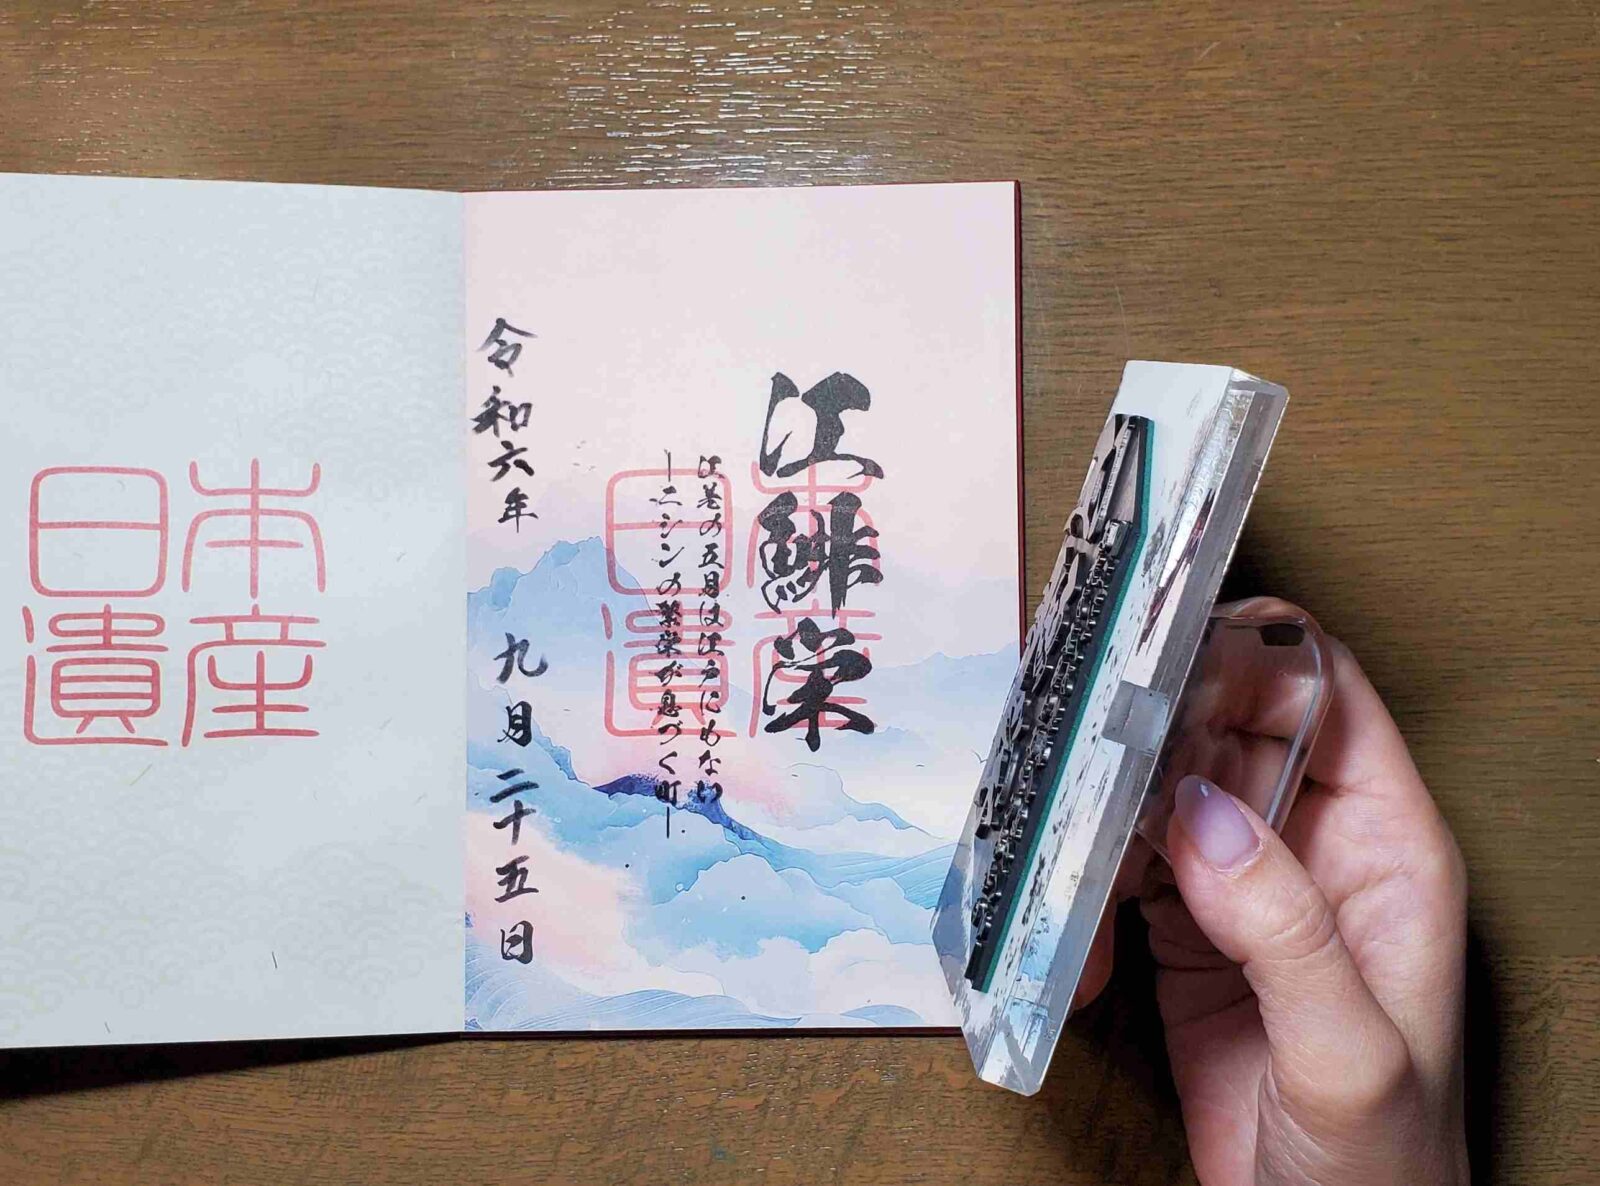 江鯡栄
江差の五月は江戸にもない
―ニシンの繁栄が息づく町―
日本
遺産
令和六年 九月二十五日
日本
遺産